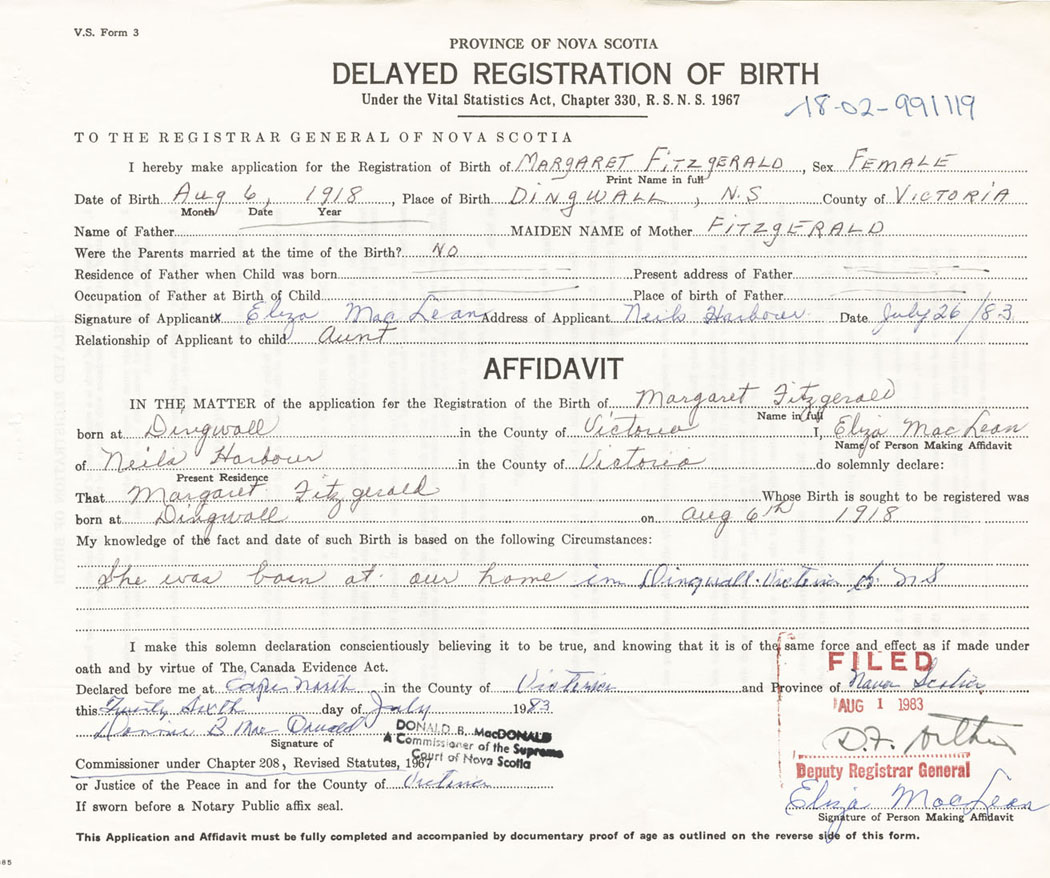 V.S. Form 3
PROVINCE OF NOVA SCOTIA
DELAYED REGISTRATION OF BIRTH
Under the Vital Statistics Act, Chapter 330, R. S. N. S. 1967
18-02-991119
TO THE REGISTRAR GENERAL OF NOVA SCOTIA
I hereby make application for the Registration of Birth of MARGARET FITZGERALD, Sex FEMALE
Print Name in full
Date of Birth Aug 6, 1918, Place of Birth DINGWALL, N.S County of VICTORIA
Month Date Year
Name of Father MAIDEN NAME of Mother FITZGERALD
Were the Parents married at the time of the Birth? NO
Residence of Father when Child was born Present address of Father
Occupation of Father at Birth of Child Place of birth of Father
Signature of Applicant x Eliza MacLean Address of Applicant Neils Harbour Date July 26/83
Relationship of Applicant to child Aunt
AFFIDAVIT
IN THE MATTER of the application for the Registration of the Birth of Margaret Fitzgerald
Name in full
born at Dingwall in the County of Victoria I, Eliza MacLean
Name of Person Making Affidavit
of Neils Harbour in the County of Victoria do solemnly declare:
Present Residence
That Margaret Fitzgerald Whose Birth is sought to be registered was
born at Dingwall on Aug 6th 1918
My knowledge of the fact and date of such Birth is based on the following Circumstances:
She was born at our home in Dingwall Victoria Co. N S
I make this solemn declaration conscientiously believing it to be true, and knowing that it is of the same force and effect as if made under
oath and by virtue of The Canada Evidence Act.
FILED
Declared before me at Cape North in the County of Victoria and Province of Nova Scotia
this Twenty Sixth day of July 1983
AUG 1 1983
Donald B. MacDonald
DONALD B. MacDONALD
A Commissioner of the Supreme
Court of Nova Scotia
Signature of
Commissioner under Chapter 208, Revised Statutes, 1967
D.F.
Deputy Registrar General
or Justice of the Peace in and for the County of Victoria
Eliza MacLean
If sworn before a Notary Public affix seal.
Signature of Person Making Affidavit
This Application and Affidavit must be fully completed and accompanied by documentary proof of age as outlined on the reverse side of this form.